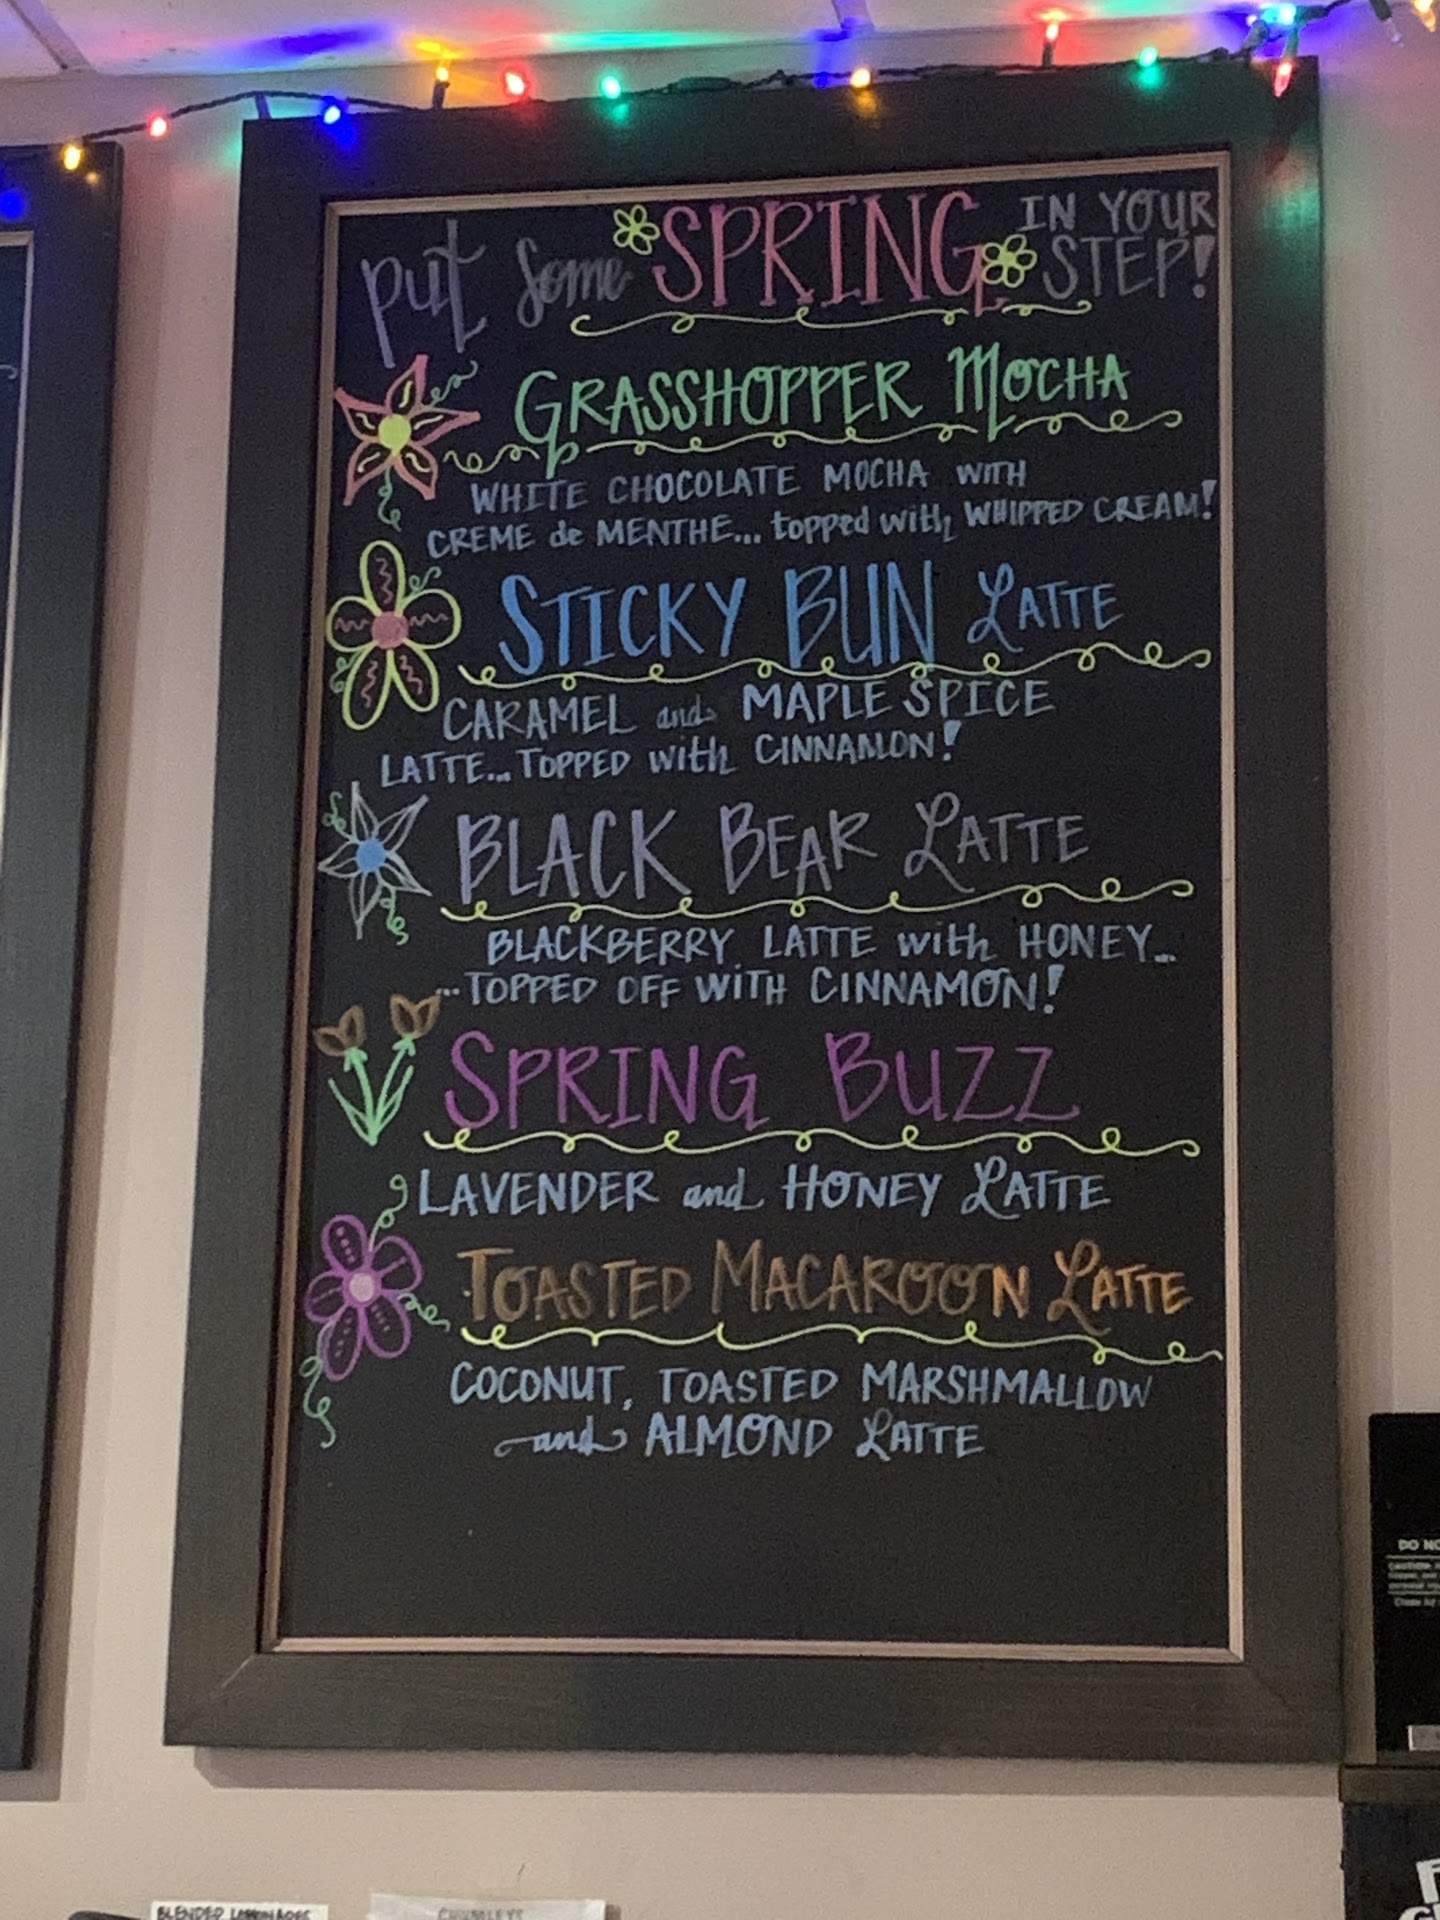 Put Some SPRING IN YOUR STEP!
GRASSHOPPER MOCHA
WHITE CHOCOLATE MOCHA WITH
CREME de MENTHE... topped with WHIPPED CREAM!
STICKY BUN LATTE
CARAMEL and MAPLE SPICE
LATTE... TOPPED with CINNAMON!
BLACK BEAR LATTE
BLACKBERRY LATTE with HONEY...
...TOPPED OFF WITH CINNAMON!
SPRING BUZZ
LAVENDER and HONEY LATTE
TOASTED MACAROON LATTE
COCONUT, TOASTED MARSHMALLOW
and ALMOND LATTE
DO NO
BLENDED LEMONADES